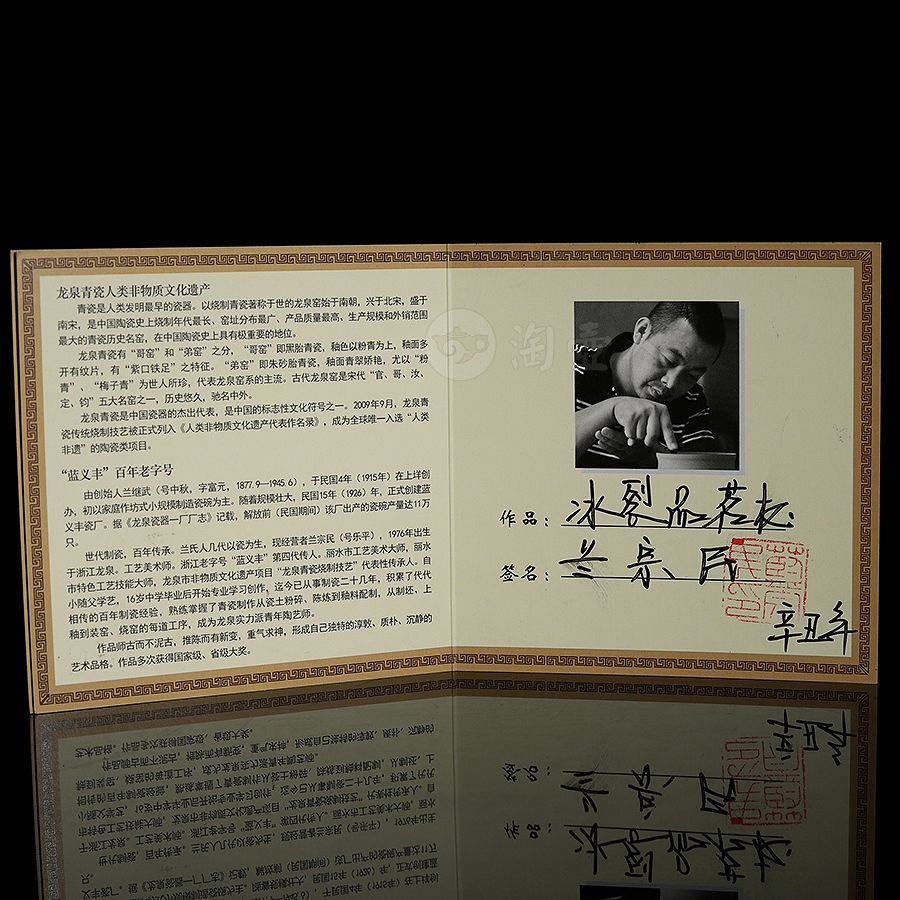 龙泉青瓷人类非物质文化遗产
青瓷是人类发明最早的瓷器。以烧制青瓷著称于世的龙泉窑始于南朝，兴于北宋，盛于
南宋，是中国陶瓷史上烧制年代最长、窑址分布最广、产品质量最高、生产规模和外销范围
最大的青瓷历史名窑，在中国陶瓷史上具有极重要的地位。
龙泉青瓷有“哥窑”和“弟窑”之分，“哥窑”即黑胎青瓷，釉色以粉青为上，釉面多
开有纹片，有“紫口铁足”之特征。“弟窑”即朱砂胎青瓷，釉面青翠娇艳，尤以“粉
青”、“梅子青”为世人所珍，代表龙泉窑系的主流。古代龙泉窑是宋代“官、哥、汝、
定、钧”五大名窑之一，历史悠久，驰名中外。
龙泉青瓷是中国瓷器的杰出代表，是中国的标志性文化符号之一。2009年9月，龙泉青
瓷传统烧制技艺被正式列入《人类非物质文化遗产代表作名录》，成为全球唯一入选“人类
非遗”的陶瓷类项目。
“蓝义丰”百年老字号
由创始人兰继武（号中秋，字富元，1877.9—1945.6），于民国4年（1915年）在上垟创
办，初以家庭作坊式小规模制造瓷碗为主。随着规模壮大，民国15年（1926）年，正式创建蓝
义丰瓷厂。据《龙泉瓷器一厂厂志》记载，解放前（民国期间）该厂出产的瓷碗产量达11万
只。
世代制瓷，百年传承。兰氏人几代以瓷为生，现经营者兰宗民（号乐平），1976年出生
于浙江龙泉。工艺美术师。浙江老字号“蓝义丰”第四代传人。丽水市工艺美术大师，丽水
市特色工艺技能大师，龙泉市非物质文化遗产项目“龙泉青瓷烧制技艺”代表性传承人。自
小随父学艺，16岁中学毕业后开始专业学习创作，迄今已从事制瓷二十几年，积累了代代
相传的百年制瓷经验，熟练掌握了青瓷制作从瓷土粉碎、陈炼到釉料配制，从制坯、上
釉到装窑、烧窑的每道工序，成为龙泉实力派青年陶艺师。
作品师古而不泥古，推陈而有新变，重气求神，形成自己独特的淳敦、质朴、沉静的
艺术品格。作品多次获得国家级、省级大奖。
淘壶
作品：冰裂品茗杯
签名：兰宗民
辛丑年